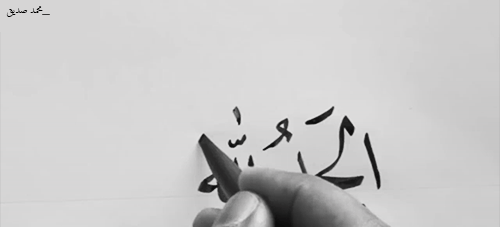 _محمد صديق
الحَمدُ للّٰه